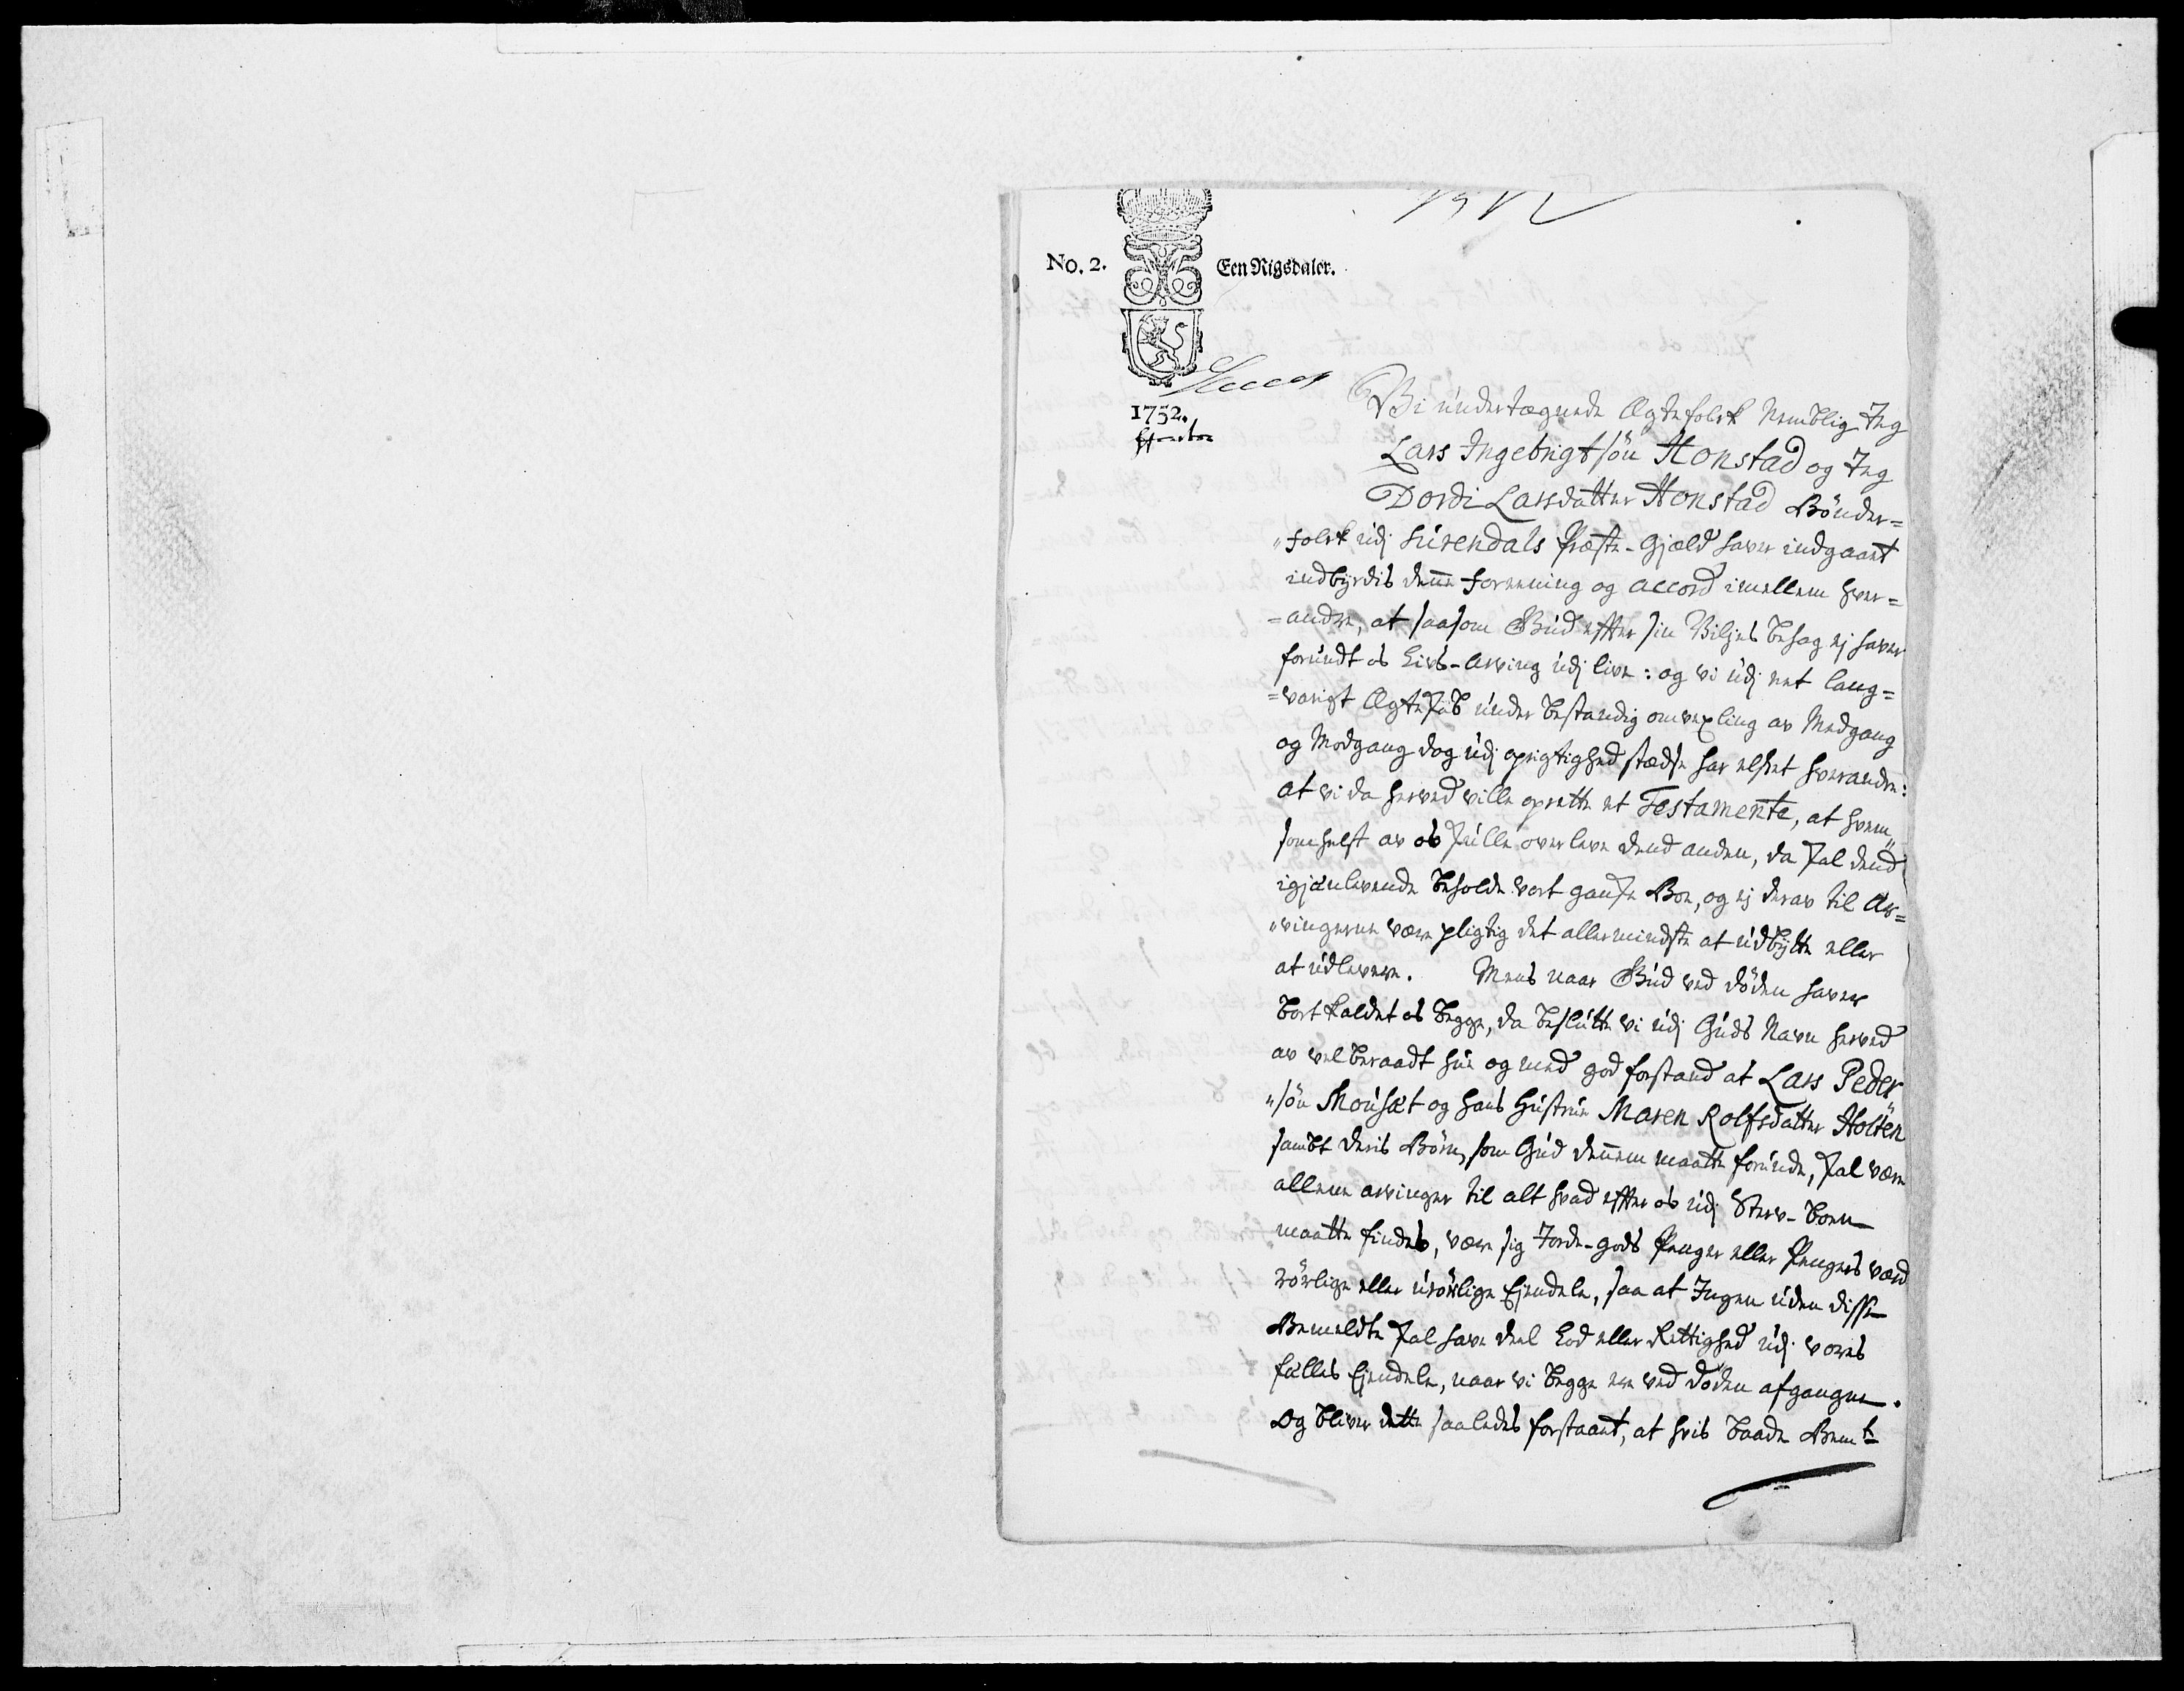 No. 2.
Een Rigsdaler.
1752.
Vi undertægnede Ægtefolck Nemblig Jeg
Lars Ingebrigtsön Honstad og Jeg
Dordi Larsdatter Honstad Bönder=
"folck udj Surendals Præste-Gjæld haver indgaaet
indbyrdis denne foreening og accord imellem hver=
=andre, at saasom Gud effter sin Viljes behag ej haver
forundt os Livs-Arving udj live: og vi udj eet lang=
=varigt Ægteskab under bestandig omvexling av Medgang
og Modgang dog udj oprigtighed stædse har elsket hverandre:
at vi da herved ville oprette et Testamente, at hvem"
somhelst av os skulle overleve dend anden, da skal dend
igjænlevende beholde vort gandske Boe, og ej derav til Ar=
"vingerne være pligtig det allermindste at udbytte eller
at udlevere. Mens naar Gud ved döden haver
bortkaldet os begge, da beslutte vi udj Guds Navn herved
av velberaadt hue og med god forstand at Lars Peder"
"sön Mousæt og hans Hustrue Maren Rolfsdatter Holten
sambt deris Börn, som Gud dennem maatte forunde, skal være
alleene arvinger til alt hvad effter os udj Sterv-boen
maatte findes, være sig Jorde-gods Penger eller Pengers værd
rörlige eller urörlige Ejendele, saa at Ingen uden disse
Bemeldte skal have deel Lod eller Rettighed udj vores
fælles Ejendele, naar vi begge ere ved döden afgangne.
Og bliver dette saaledes forstaaet, at hvis baade Bemte